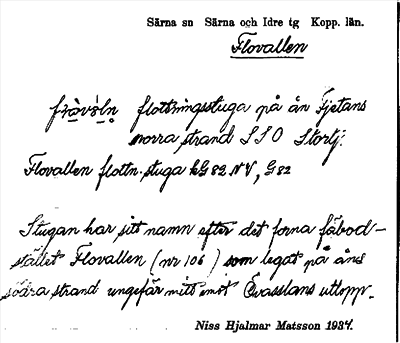 Särna sn Särna och Idre tg Kopp. län.
Flovallen
flottningsstuga på ån Fjetans
norra strand SSO Stortj.
Flovallen flottn.stuga kG82 NV, G82
Stugan har sitt namn efter det forna fäbod-
stället Flovallen (nr 106) som legat på åns
södra strand ungefär mitt emot Evasslans utlopp.
Niss Hjalmar Matsson 1937.